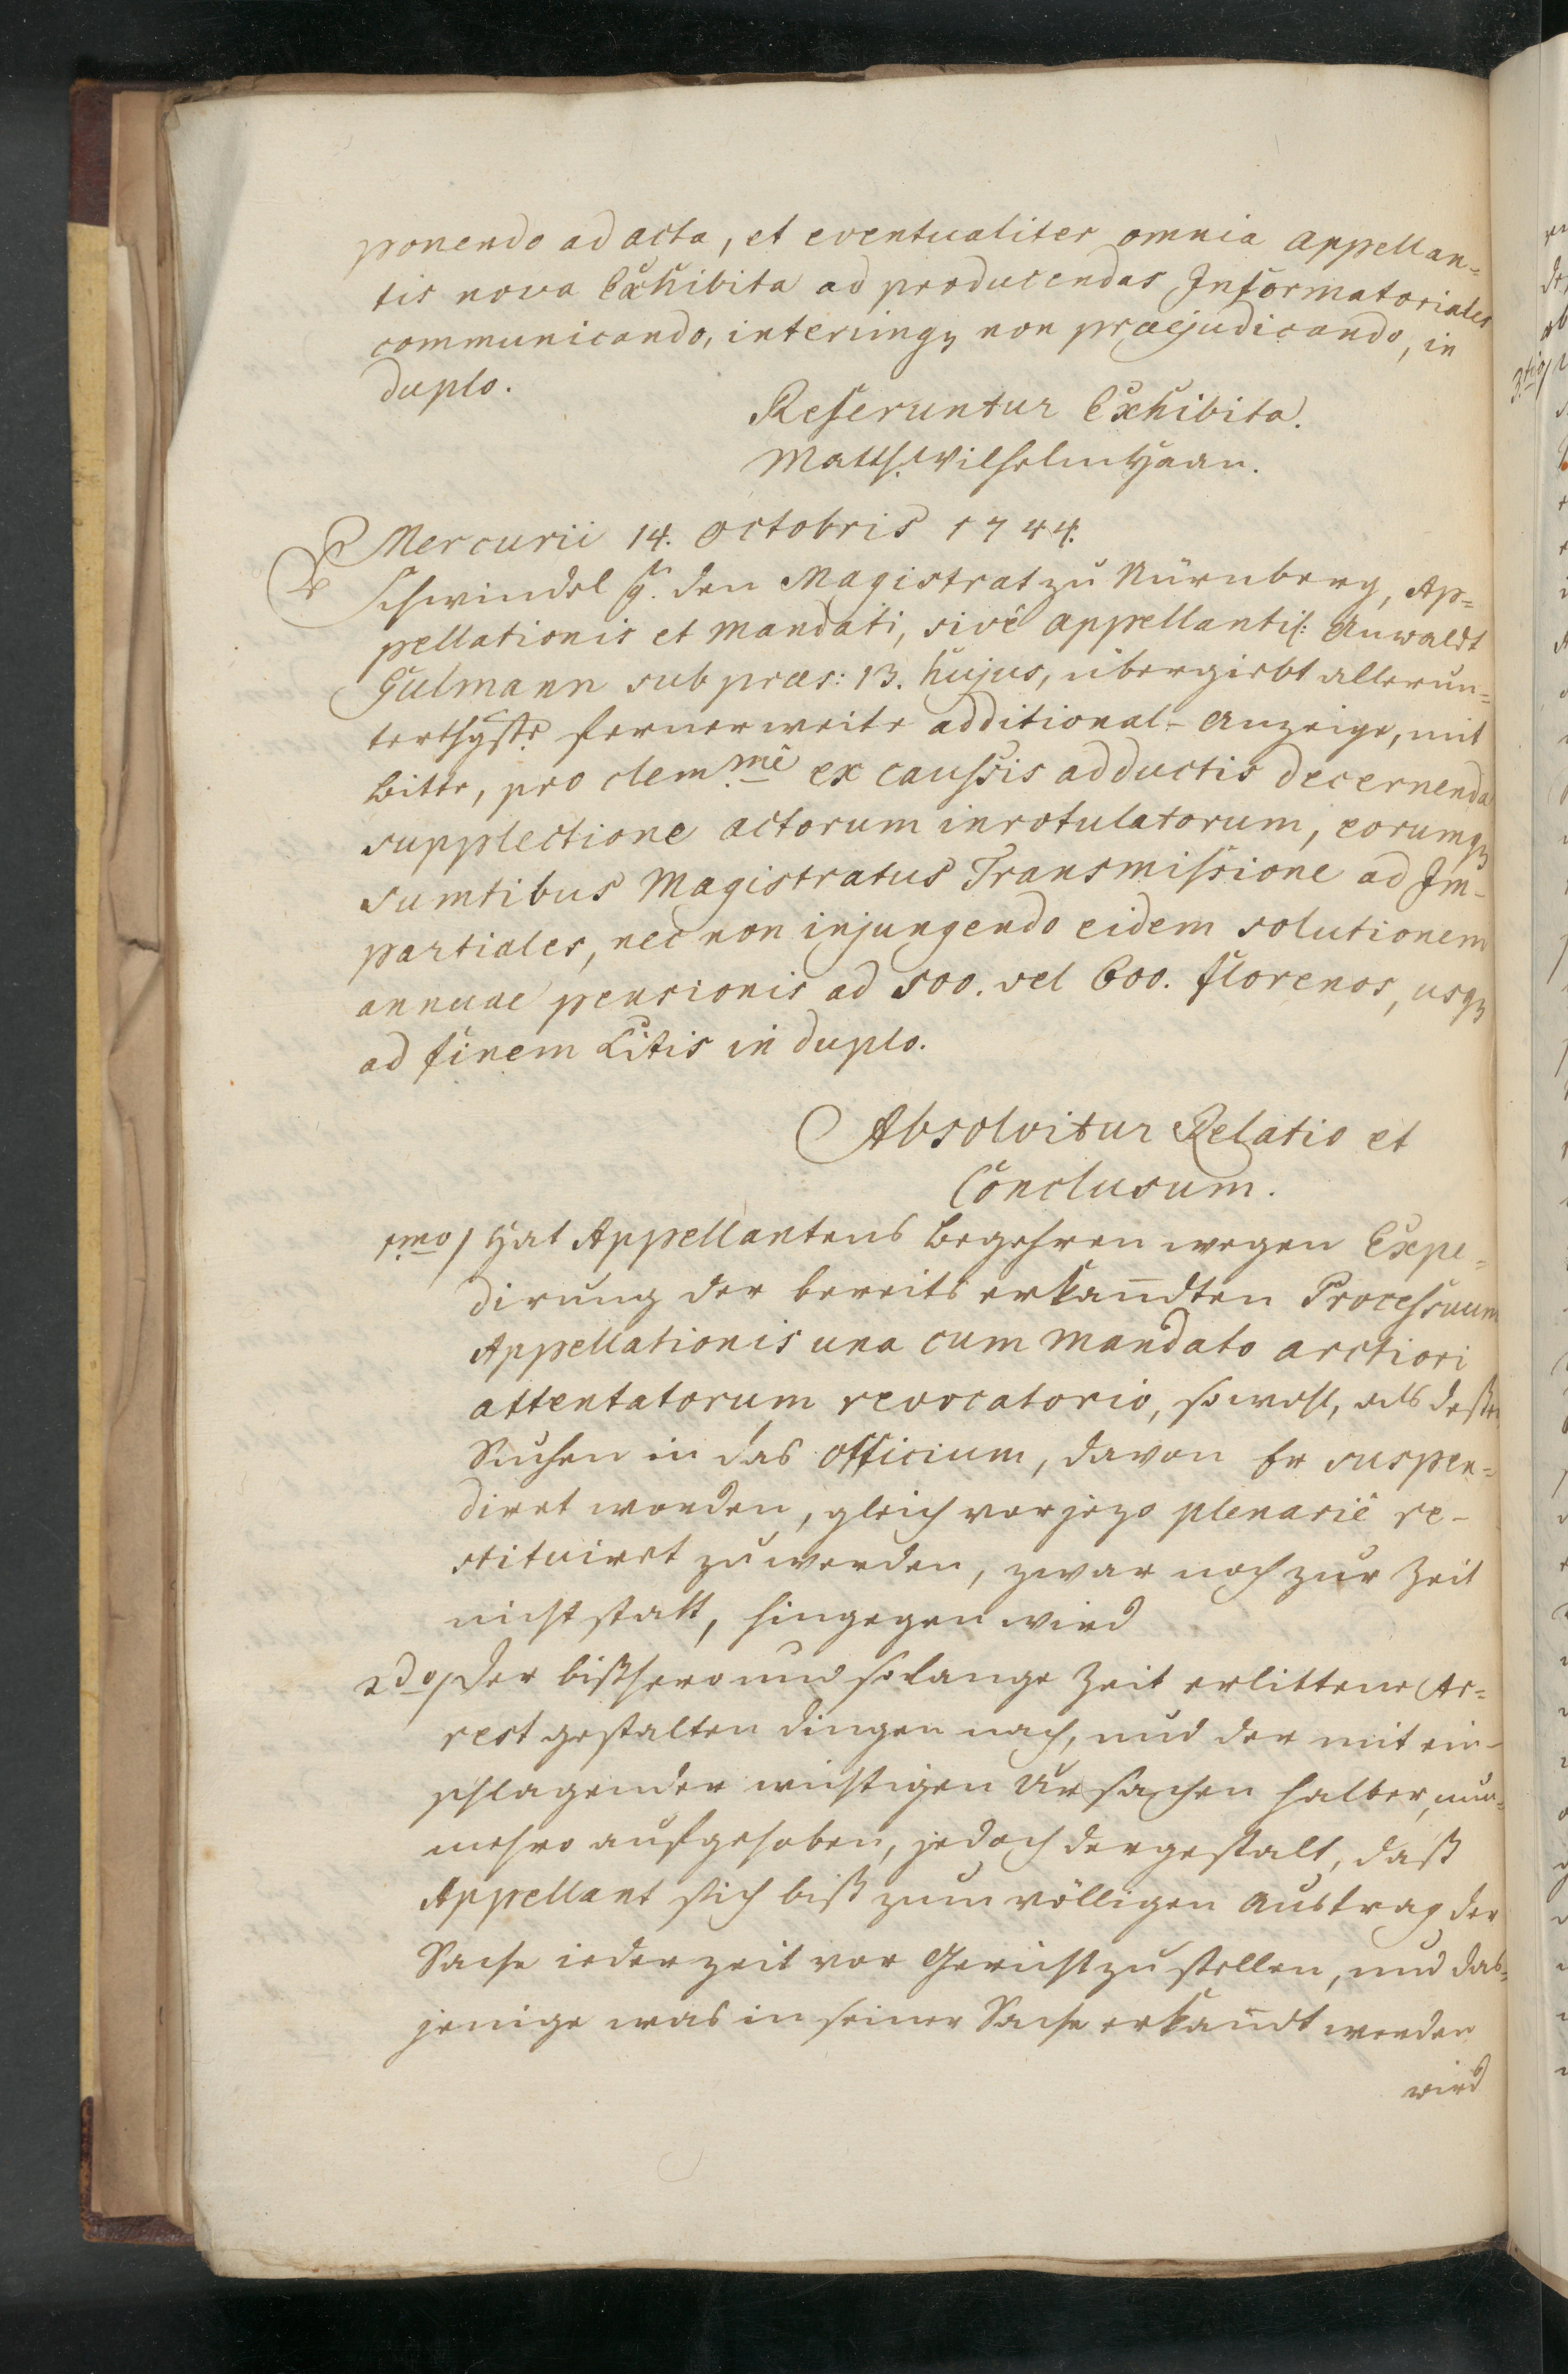 ponendo ad acta, et eventualiter omnia Appellan=
tis nova Exhibita ad producendas Informatoriales
communicando, interimq3 non præjudicando, in
duplo.
Referuntur Exhibita.
Matth. Wilhelm Haan.
Mercurii 14. Octobris 1744.
Schwindel g. den Magistrat zu Nürnberg, Ap=
pellationis et Mandati, sivè appellantis: Anwaldt
Gülmann sub præs: 13. hujus, übergiebt allerun=
terthgste fernerweite additional-Anzeige, mit
Bitte, pro clem.mè ex caussis adductis decernenda
supplectione actorum inrotulatorum, eorumq3
sumtibus Magistratus Transmissione ad Im-
partiales, nec non injungendo eidem solutionem
annuae pensionis ad 500. vel 600. florenos, usq3
ad finem Litis in duplo.
Absolvitur Relatio et
Conclusum.
1.mo/ Hat Appellantens Begehren wegen Expe=
dirung der bereits erkandten Processuum
Appellationis una cum Mandato arctiori
attentatorum revocatorio, so wohl, als deßen
Suchen in das Officium, davon Er suspen=
diret worden, gleich vorjezo plenariè re-
stituiret zu werden, zwar noch zur Zeit
nicht statt, hingegen wird
2do/ Der bißhero und so lange Zeit erlittene Ar=
rest gestalten dingen nach, und der mit ein-
schlagender wichtigen Ursachen halber, nun=
mehro aufgehoben, jedoch dergestalt, daß
Appellant sich biß zum völligen Austrag der
Sache iederzeit vor Gericht zu stellen, und das=
jenige was in seiner Sache erkandt werden
wird